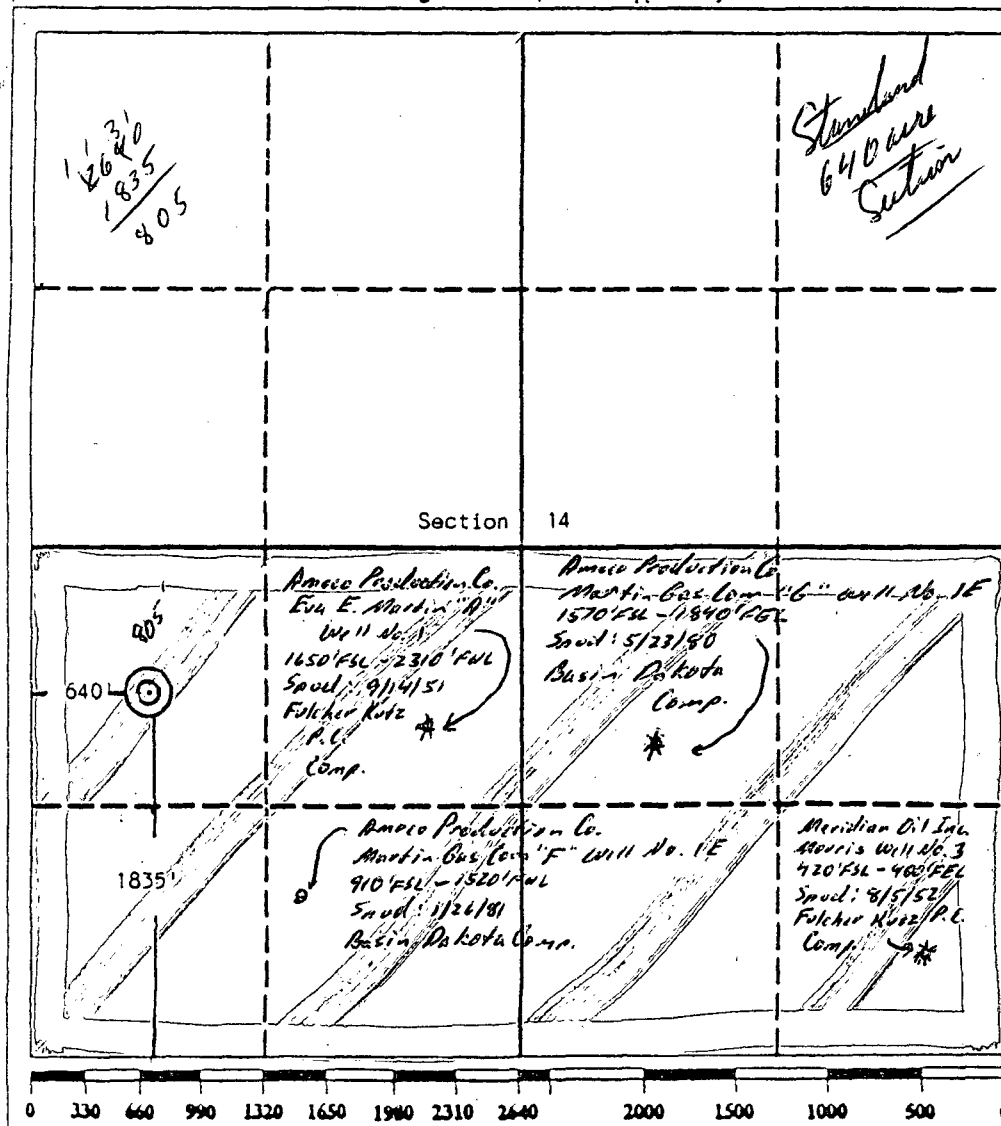 1 1 3 1
2640
1835
805
Standard
640 acre
Section
Section 14
Amoco Production Co.
Eva E. Martin "A"
Well No. 1
1650'FSL - 2310'FWL
Spud: 9/14/51
Fulcher Kutz
P.C.
Comp.
Amoco Production Co
Martin Gas Com "G" well No. 1E
1570'FSL - 1840'FEL
Spud: 5/23/80
Basin Dakota
Comp.
805'
640'
1835'
Amoco Production Co.
Martin Gas Com "F" Well No. 1E
910'FSL - 1520'FWL
Spud: 1/26/81
Basin Dakota Comp.
Meridian Oil Inc.
Morris Well No. 3
420'FSL - 400'FEL
Spud: 8/5/52
Fulcher Kutz P.C.
Comp.
0 330 660 990 1320 1650 1980 2310 2640 2000 1500 1000 500